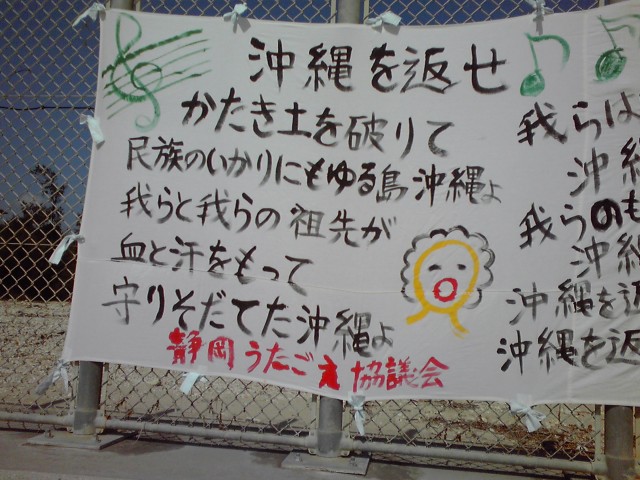 沖縄を返せ
かたき土を破りて
民族のいかりにもゆる島沖縄よ
我らと我らの祖先が
血と汗をもって
守りそだてた沖縄よ
静岡うたごえ協議会
我らは
沖縄
我らのも
沖縄
沖縄を返
沖縄を返